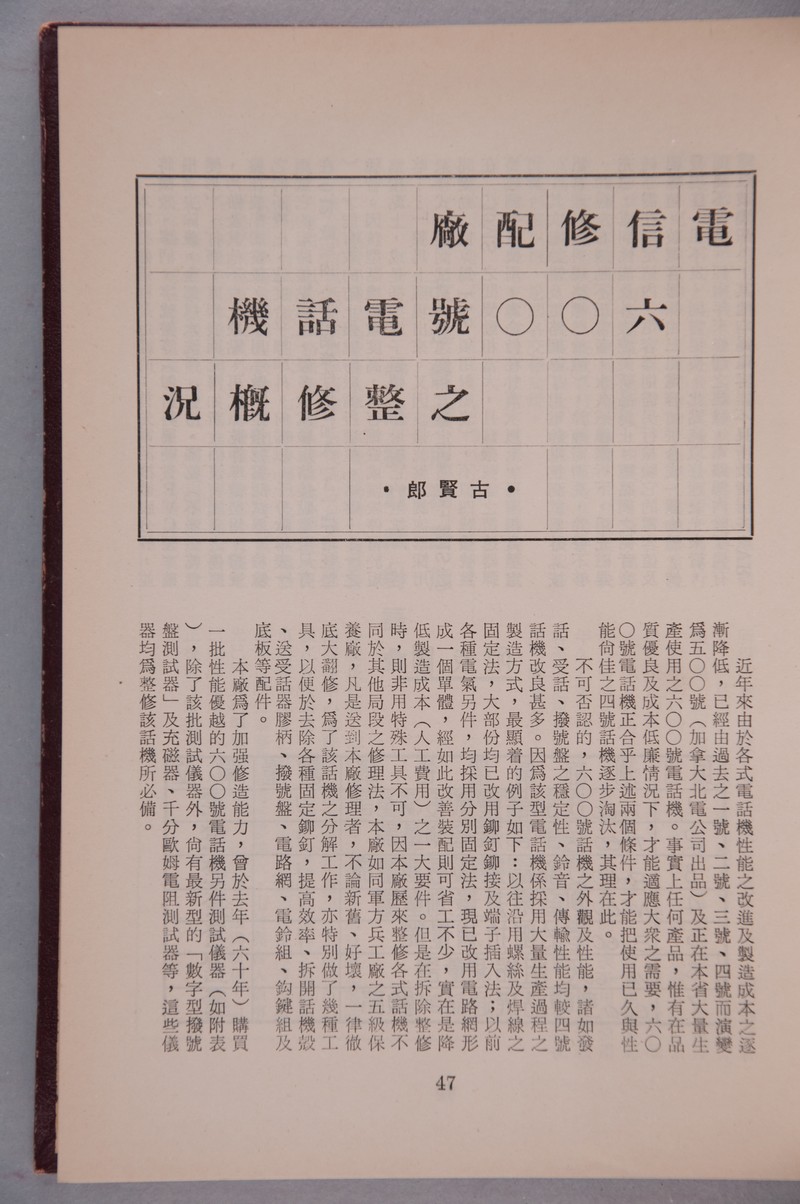 電信修配廠
六〇〇號電話機
之整修概況
•古賢郎•
近年來由於各式電話機性能之改進及製造成本之逐
漸降低，已經由過去之一號、二號、三號、四號而演變
爲五〇〇號（加拿大北電公司出品）及正在本省大量生
產使用之六〇〇號電話機。事實上任何產品，惟有在品
質優良及成本低廉情況下，才能適應大衆之需要，六〇
〇號電話機正合乎上述兩個條件，才能把使用已久與性
能尙佳之四號話機逐步淘汰，其理在此。
不可否認的，六〇〇號話機之外觀及性能，諸如發
話、受話、撥號盤之穩定性、鈴音、傳輸性能均較四號
話機改良甚多。因爲該型電話機係採用大量生產過程之
製造方式，最顯着的例子如下：以往沿用螺絲及焊線之
固定法，大部份均已改用鉚釘鉚接及端子插入法；以前
各種電氣另件，均採用分別固定法，現已改用電路網形
成一個單體，經如此改善裝配則可省工不少，實在是降
低製造成本（人工費用）之一大要件。但是在拆除整修
時，則非用特殊工具不可，因本廠歷來整修各式話機不
同於其他局段之修理法，本廠如同軍方兵工廠之五級保
養廠，凡是送到本廠修理者，不論新舊、好壞，一律徹
底大翻修，爲了該話機之分解工作，亦特別做了幾種工
具，以便於去除各種固定鉚釘，提高效率、拆開話機殼
、送受話器膠柄、撥號盤、電路網、電鈴組、鈎鍵組及
底板等配件。
本廠爲了加强修造能力，曾於去年（六十年）購買
一批性能優越的六〇〇號電話機另件測試儀器（如附表
），除了該批測試儀器外，尙有最新型的「數字型撥號
盤測試器」及充磁器、千分歐姆電阻測試器等，這些儀
器均爲整修該話機所必備。
47